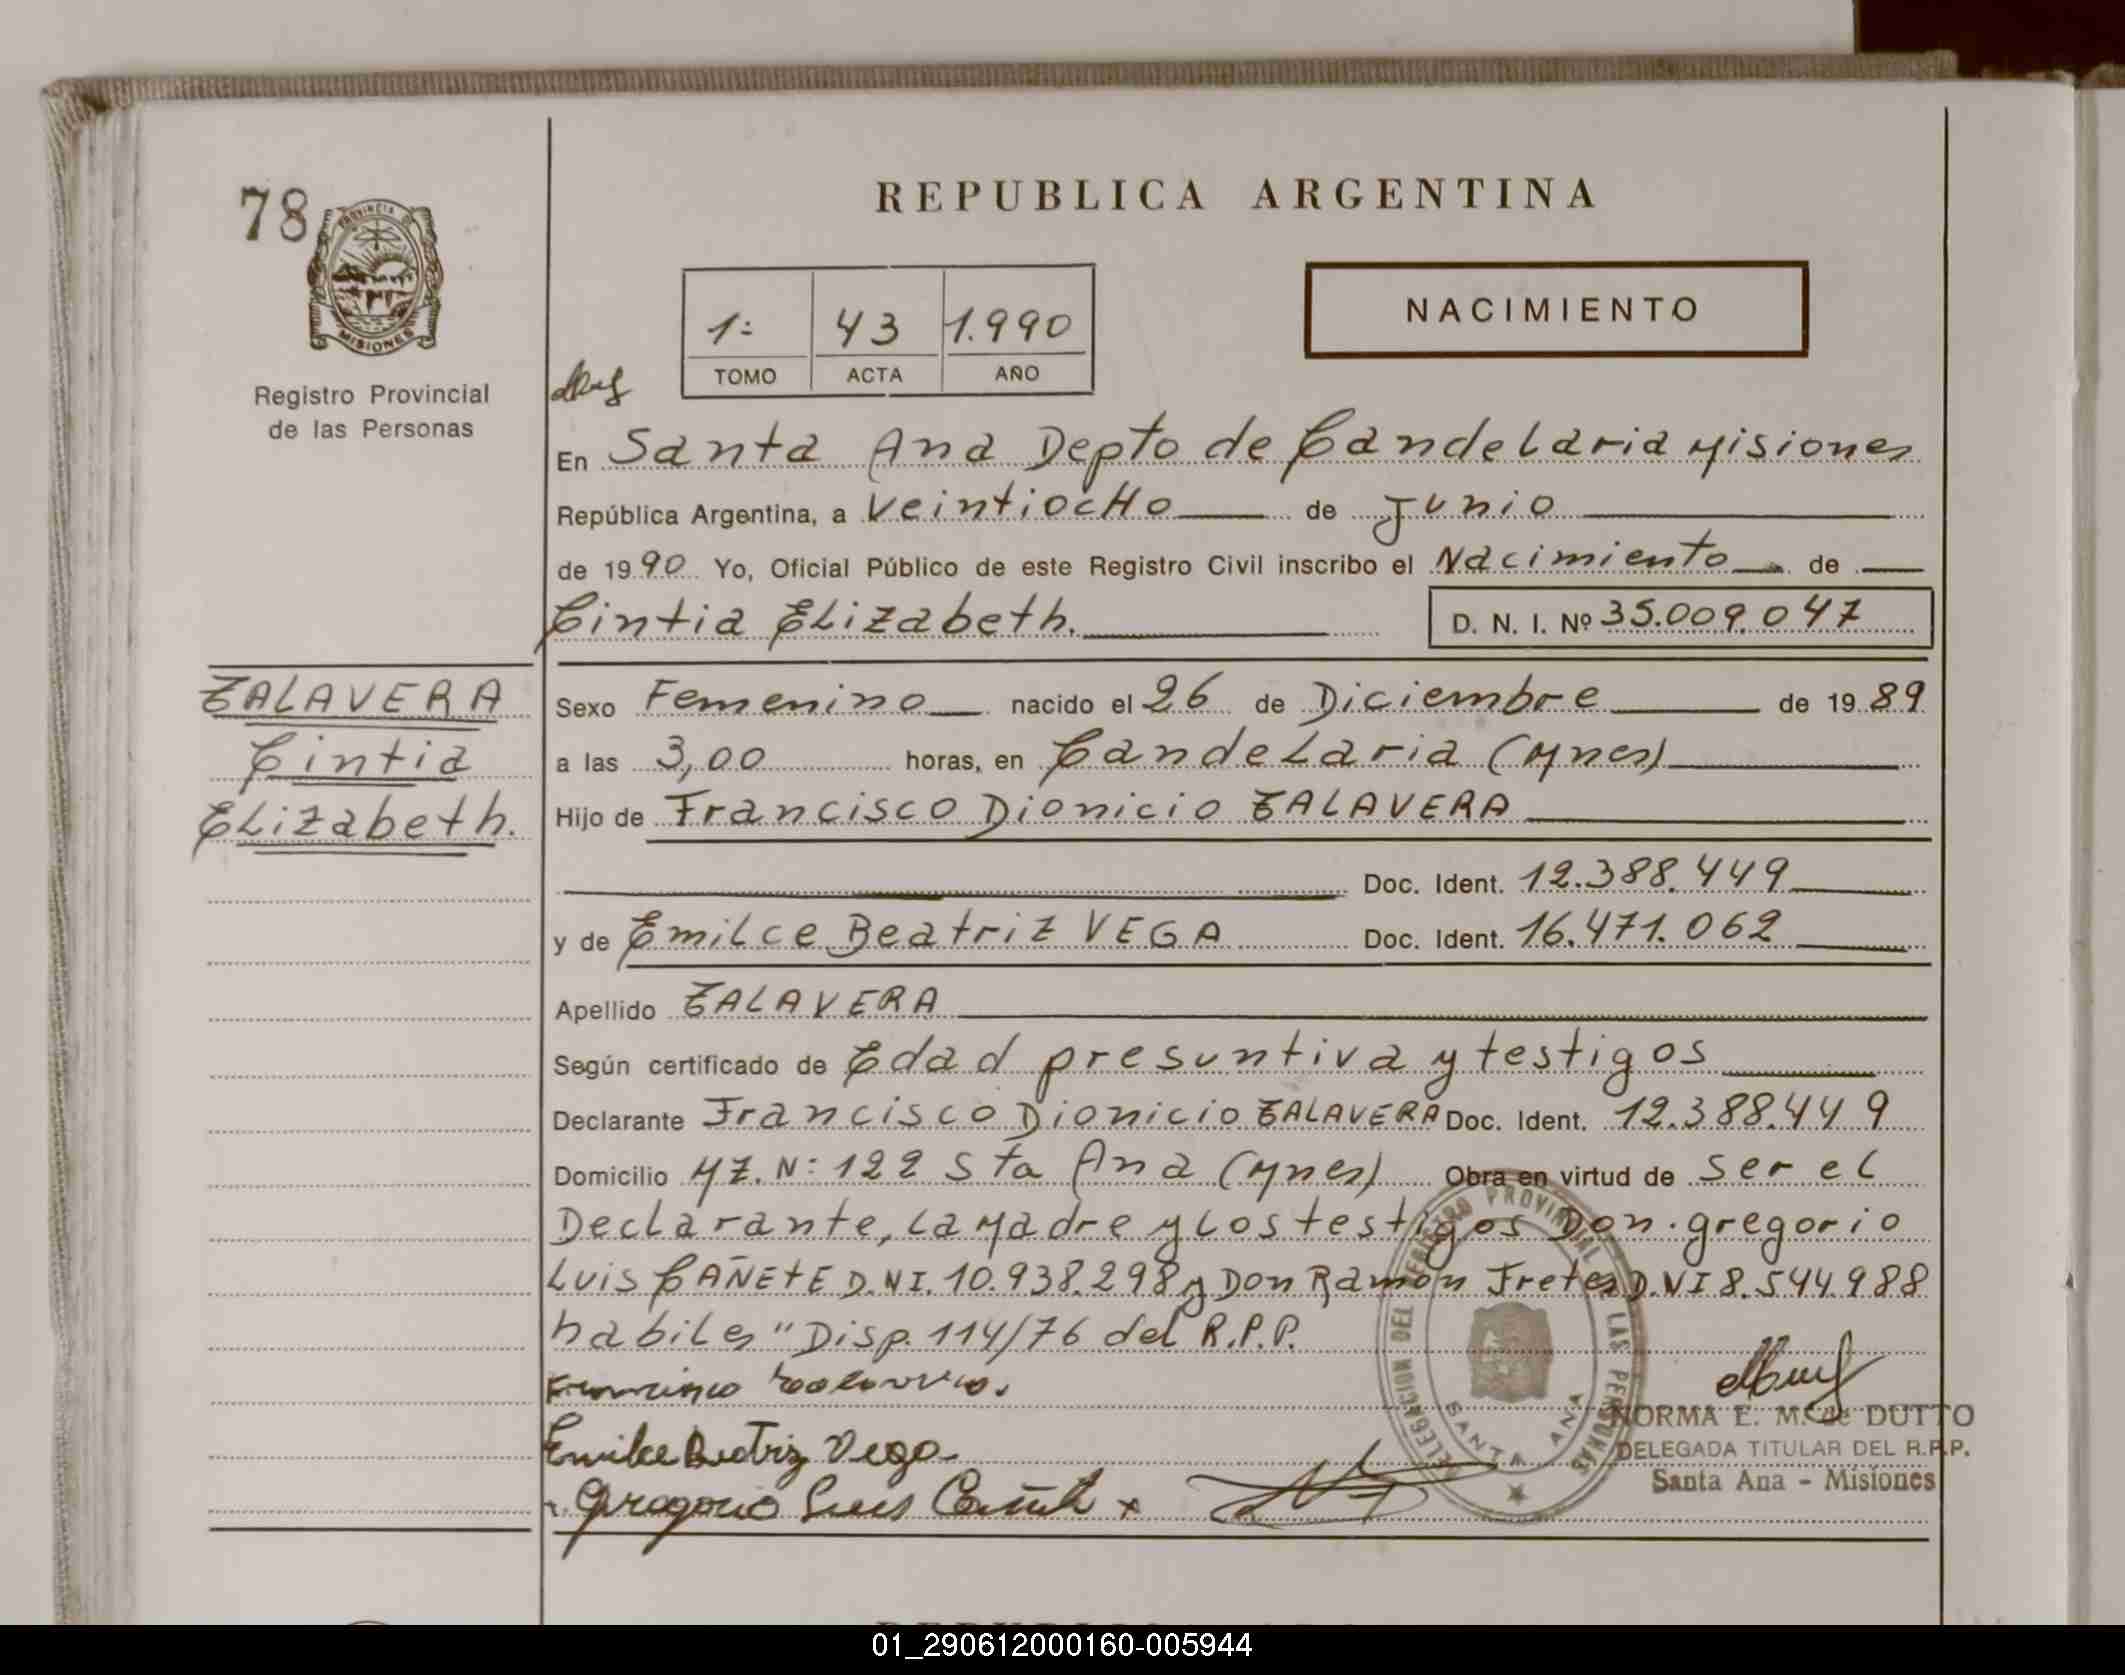 78
PROVINCIA DE
MISIONES
Registro Provincial
de las Personas
REPUBLICA ARGENTINA
NACIMIENTO
1: 43 1.990
TOMO ACTA AÑO
En Santa Ana Depto de Candelaria Misiones
República Argentina, a veintiocHo de Junio
de 1990 Yo, Oficial Público de este Registro Civil inscribo el Nacimiento de
Cintia Elizabeth.
D. N. I. Nº 35.009.047
ZALAVERA
Cintia
Elizabeth.
Sexo Femenino nacido el 26 de Diciembre de 1989
a las 3,00 horas, en Candelaria (Mnes)
Hijo de Francisco Dionicio ZALAVERA
Doc. Ident. 12.388.449
y de Emilce Beatriz VEGA Doc. Ident. 16.471.062
Apellido ZALAVERA
Según certificado de Edad presuntiva y testigos
Declarante Francisco Dionicio ZALAVERA Doc. Ident. 12.388.449
Domicilio MZ. N: 122 Sta Ana (Mnes) Obra en virtud de ser el
Declarante, la Madre y los testigos Don. gregorio
Luis CAÑETE D.N.I. 10.938.298 y Don Ramón Fretes D.N.I 8.544.988
habiles" Disp. 114/76 del R.P.P.
Emilce Beatriz Vega
Gregorio Luis Cañete x
DELEGACION DEL REGISTRO PROVINCIAL DE LAS PERSONAS
SANTA ANA
NORMA E. M. de DUTTO
DELEGADA TITULAR DEL R.P.P.
Santa Ana - Misiones
01_290612000160-005944